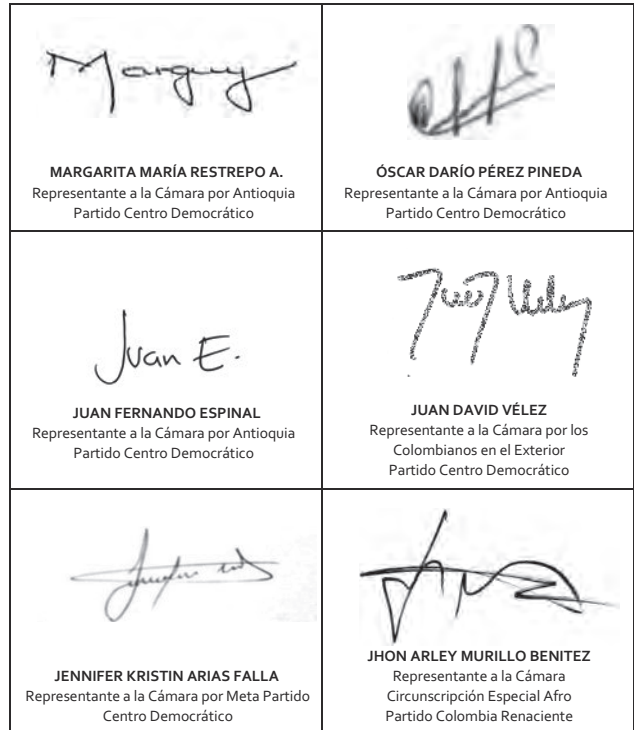 Marguy
MARGARITA MARÍA RESTREPO A.
Representante a la Cámara por Antioquia
Partido Centro Democrático
ÓSCAR DARÍO PÉREZ PINEDA
Representante a la Cámara por Antioquia
Partido Centro Democrático
Juan E.
JUAN FERNANDO ESPINAL
Representante a la Cámara por Antioquia
Partido Centro Democrático
JUAN DAVID VÉLEZ
Representante a la Cámara por los
Colombianos en el Exterior
Partido Centro Democrático
JENNIFER KRISTIN ARIAS FALLA
Representante a la Cámara por Meta Partido
Centro Democrático
JHON ARLEY MURILLO BENITEZ
Representante a la Cámara
Circunscripción Especial Afro
Partido Colombia Renaciente